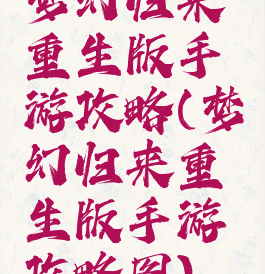 梦幻归来
重生版手
游攻略(梦
幻归来重
生版手游
攻略图)